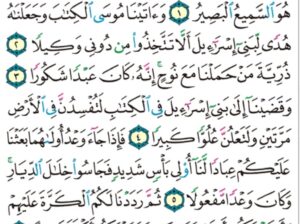 هُوَ ٱلسَّمِيعُ ٱلْبَصِيرُ ١ وَءَاتَيْنَا مُوسَى ٱلْكِتَٰبَ وَجَعَلْنَٰهُ
هُدًى لِّبَنِىٓ إِسْرَٰٓءِيلَ أَلَّا تَتَّخِذُوا۟ مِن دُونِى وَكِيلًا ٢
ذُرِّيَّةَ مَنْ حَمَلْنَا مَعَ نُوحٍ إِنَّهُۥ كَانَ عَبْدًا شَكُورًا ٣
وَقَضَيْنَآ إِلَىٰ بَنِىٓ إِسْرَٰٓءِيلَ فِى ٱلْكِتَٰبِ لَتُفْسِدُنَّ فِى ٱلْأَرْضِ
مَرَّتَيْنِ وَلَتَعْلُنَّ عُلُوًّا كَبِيرًا ٤ فَإِذَا جَآءَ وَعْدُ أُولَىٰهُمَا بَعَثْنَا
عَلَيْكُمْ عِبَادًا لَّنَآ أُو۟لِى بَأْسٍ شَدِيدٍ فَجَاسُوا۟ خِلَٰلَ ٱلدِّيَارِ
وَكَانَ وَعْدًا مَّفْعُولًا ٥ ثُمَّ رَدَدْنَا لَكُمُ ٱلْكَرَّةَ عَلَيْهِمْ